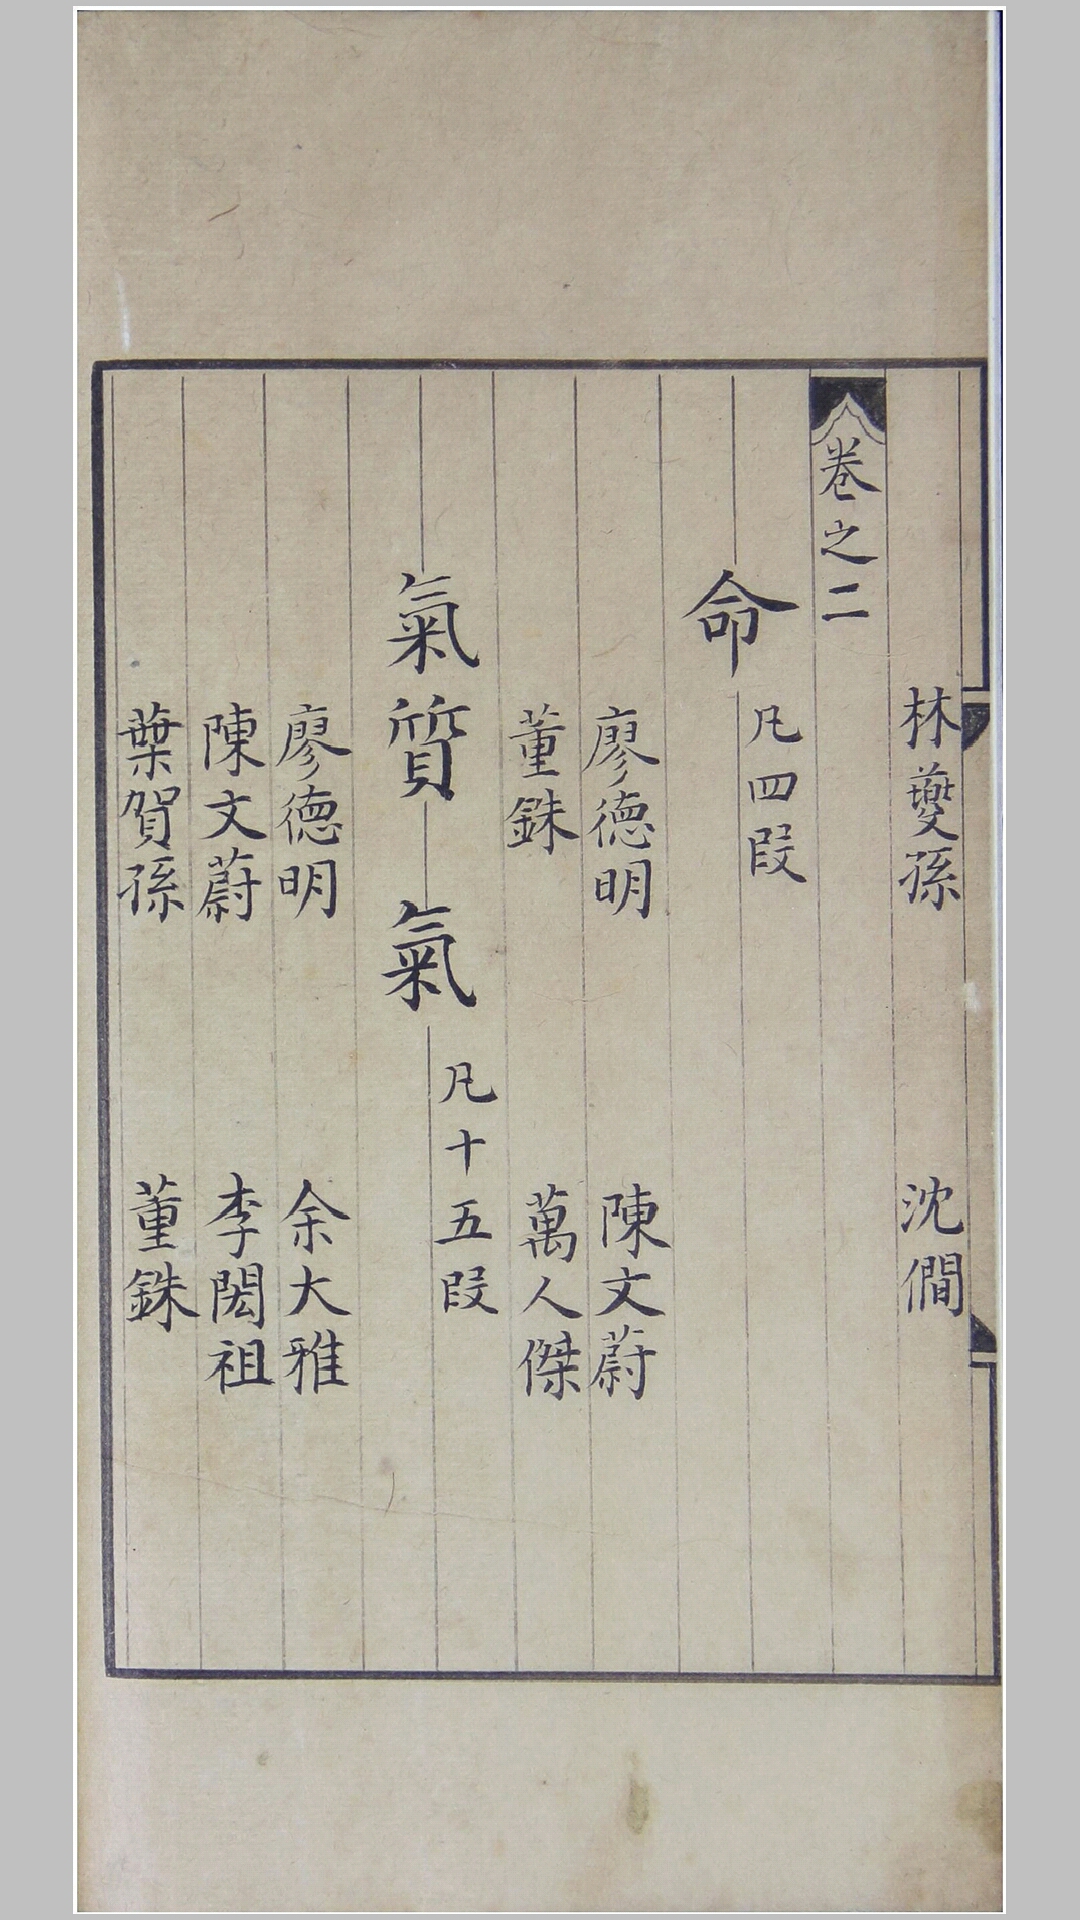 林夔孫 沈僩
卷之二
命 凡四段
廖德明 陳文蔚
董銖 萬人傑
氣質 氣 凡十五段
廖德明 余大雅
陳文蔚 李閎祖
葉賀孫 董銖